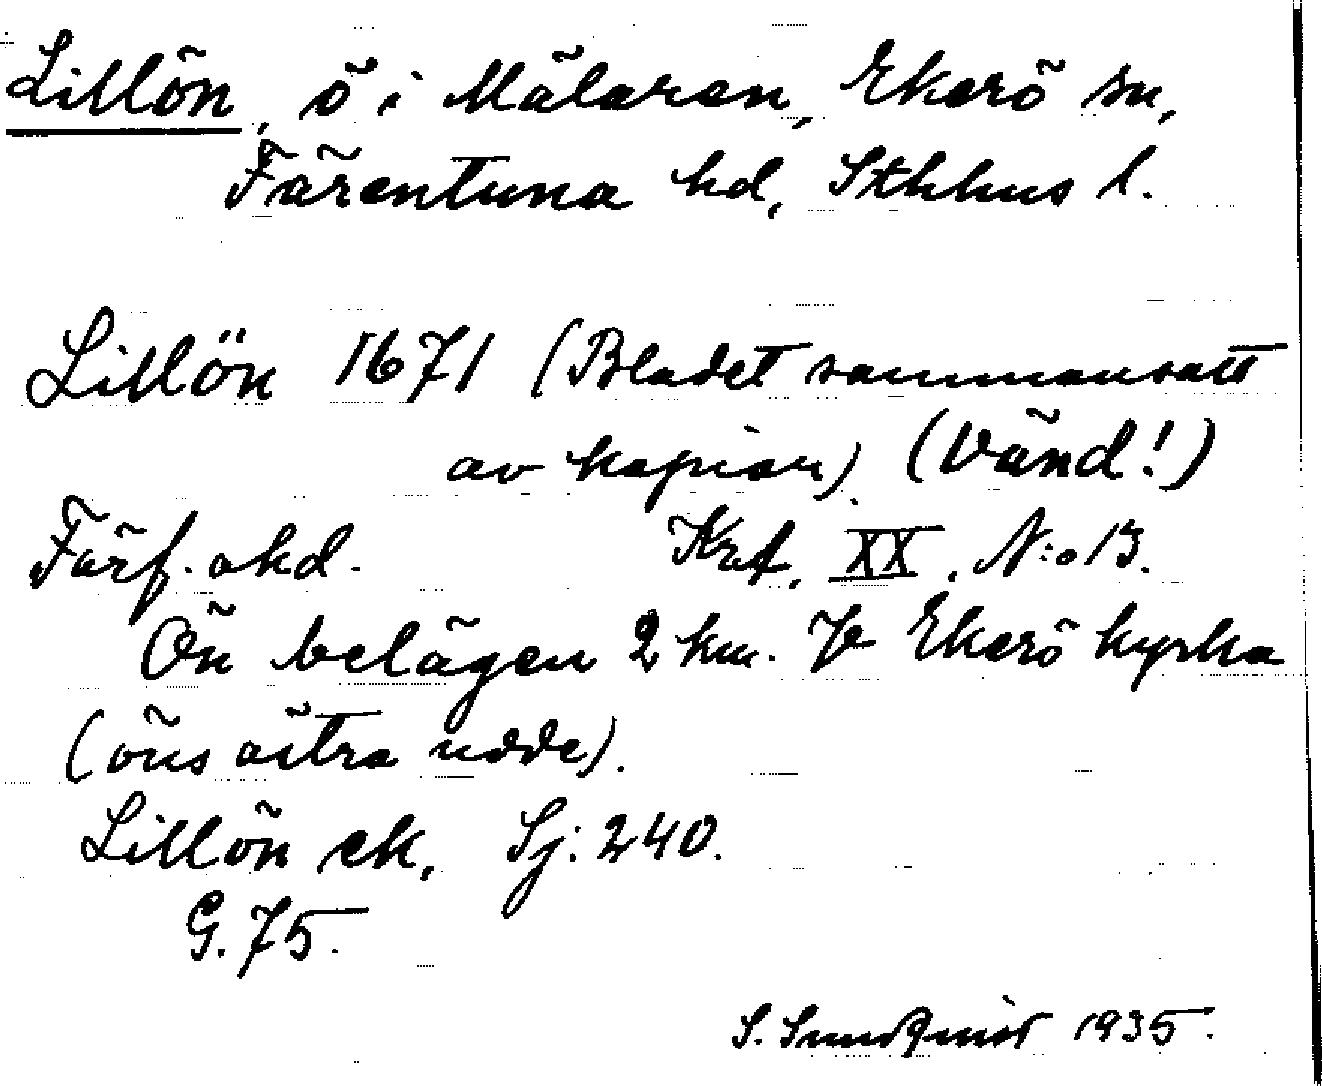 Lillön, ö i Mälaren, Ekerö sn,
Färentuna hd, Sthlms l.
Lillön 1671 (Bladet sammansatt
av kopior). (Vänd!)
Färf. okd. Krt. XX. N:o 13.
Ön belägen 2 km. Ekerö kyrka
(öns östra udde).
Lillön ek, Sj: 240.
G. 75.
S. Sundquist 1935.